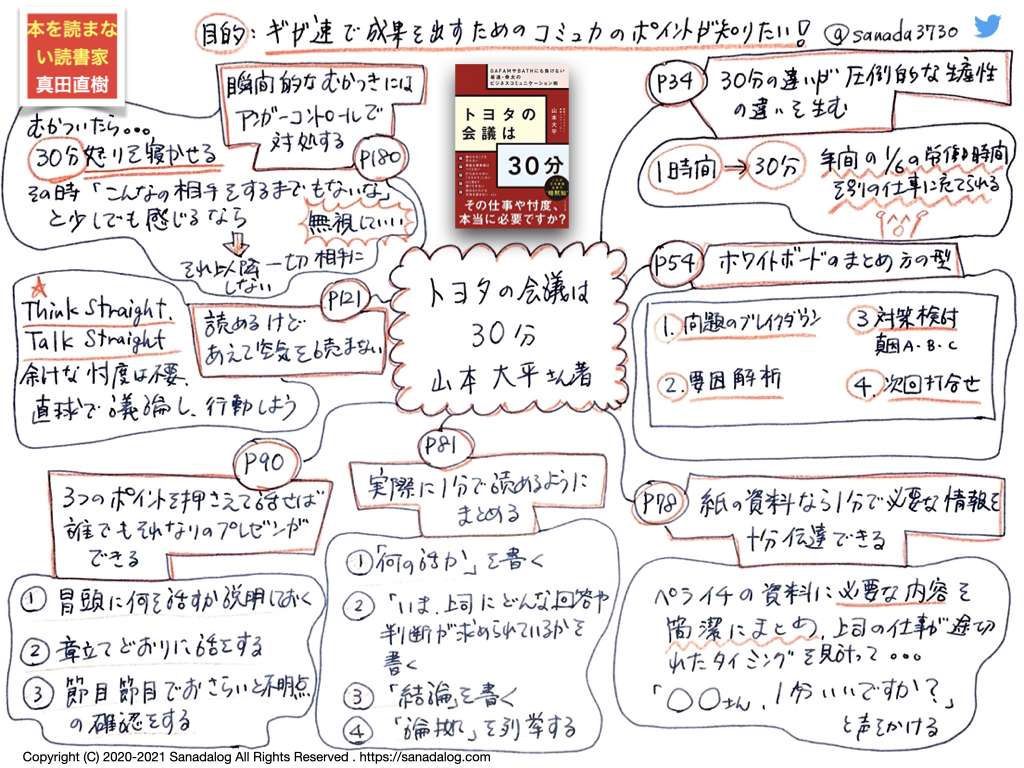 本を読まな
い読書家
真田直樹
目的：ギガ速で成果を出すためのコミュ力のポイントが知りたい！
@sanada3730
GAFAMやBATHにも負けない
最速・骨太の
ビジネスコミュニケーション術
トヨタの
会議は
30分
山本大平
暗黙知
その仕事や忖度、
本当に必要ですか？
トヨタの会議は
30分
山本大平さん著
P34
30分の違いが圧倒的な生産性
の違いを生む
1時間→30分
年間の1/6の労働時間
を別の仕事にあてられる
P54
ホワイトボードのまとめ方の型
1. 問題のブレイクダウン
2. 要因解析
3 対策検討
真因A・B・C
4. 次回打合せ
P78
紙の資料なら1分で必要な情報を
十分伝達できる
ペライチの資料に必要な内容を
簡潔にまとめ、上司の仕事が途切
れたタイミングを見計って…
「〇〇さん、1分いいですか？」
と声をかける
P81
実際に1分で読めるように
まとめる
①「何の話か」を書く
②「いま、上司にどんな回答や
判断が求められているかを
書く
③「結論」を書く
④「論拠」を列挙する
P90
3つのポイントを押さえて話せば
誰でもそれなりのプレゼンが
できる
① 冒頭に何を話すか説明しておく
② 章立てどおりに話をする
③ 節目節目でおさらいと不明点
の確認をする
P121
読めるけど
あえて空気を読まない
Think Straight,
Talk Straight
余計な忖度は不要、
直球で議論し、行動しよう
P180
瞬間的なむかつきには
アンガーコントロールで
対処する
むかついたら…
30分怒りを寝かせる
その時「こんなの相手をするまでもないな」
と少しでも感じるなら
無視していい
それ以降一切相手に
しない
Copyright (C) 2020-2021 Sanadalog All Rights Reserved . https://sanadalog.com